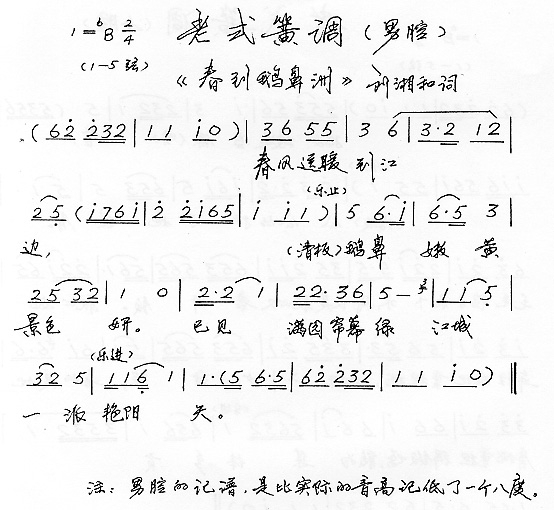 1=♭B 2/4 老式簧调（男腔）
(1-5弦)
《春到鹅鼻洲》 刘湘和词
(6̲2̲̇ 2̲̇3̲2̲ | 1̲1̲ i̲0̲) | 3̲6̲ 5̲5̲ | 3 6̲ | 3̲·2̲ 1̲2̲ |
春风送暖 到江
(乐止)
2̲5̲̣ (i̲7̲6̲i̲ | 2̲̇ 2̲̇i̲6̲5̲ | i̲ i̲1̲) | 5 6̲·i̲ | 6̲·5̲ 3 |
边, (清板)鹅鼻 嫩 黄
2̲5̲ 3̲2̲ | 1 0 | 2̲·2̲ 1 | 2̲2̲·3̲6̲ | 5 - | 1̲1̲ 5̲̣ |
景色 妍。 已见 满园 帘幕 绿 江城
(乐进)
3̲2̲ 5 | 1̲1̲6̲̣ 1 | 1·(5̲ 6̲·5̲ | 6̲2̲̇ 2̲̇3̲2̲ | 1̲ 1̲ i̲ 0̲) ‖
一 派 艳阳 天。
注：男腔的记谱，是比实际的音高记低了一个八度。